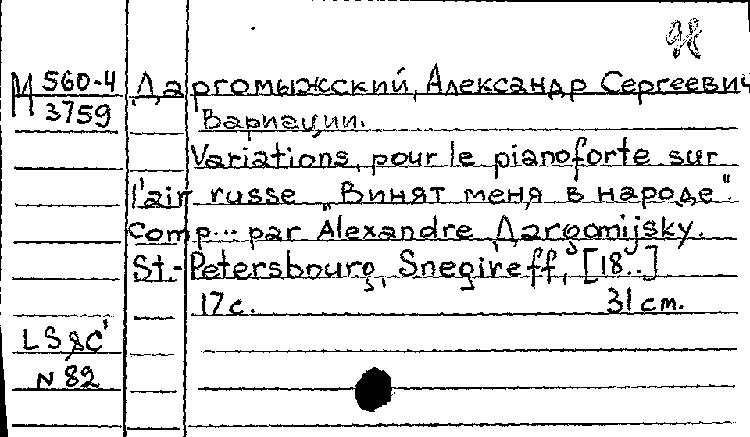 98
М 560-4 Даргомыжский, Александр Сергеевич
3759 Вариации.
Variations, pour le pianoforte sur
l'air russe „Винят меня в народе".
Comp... par Alexandre Dargomijsky.
St.-Petersbourg, Snegireff, [18..]
17 с. 31 cm.
N 82